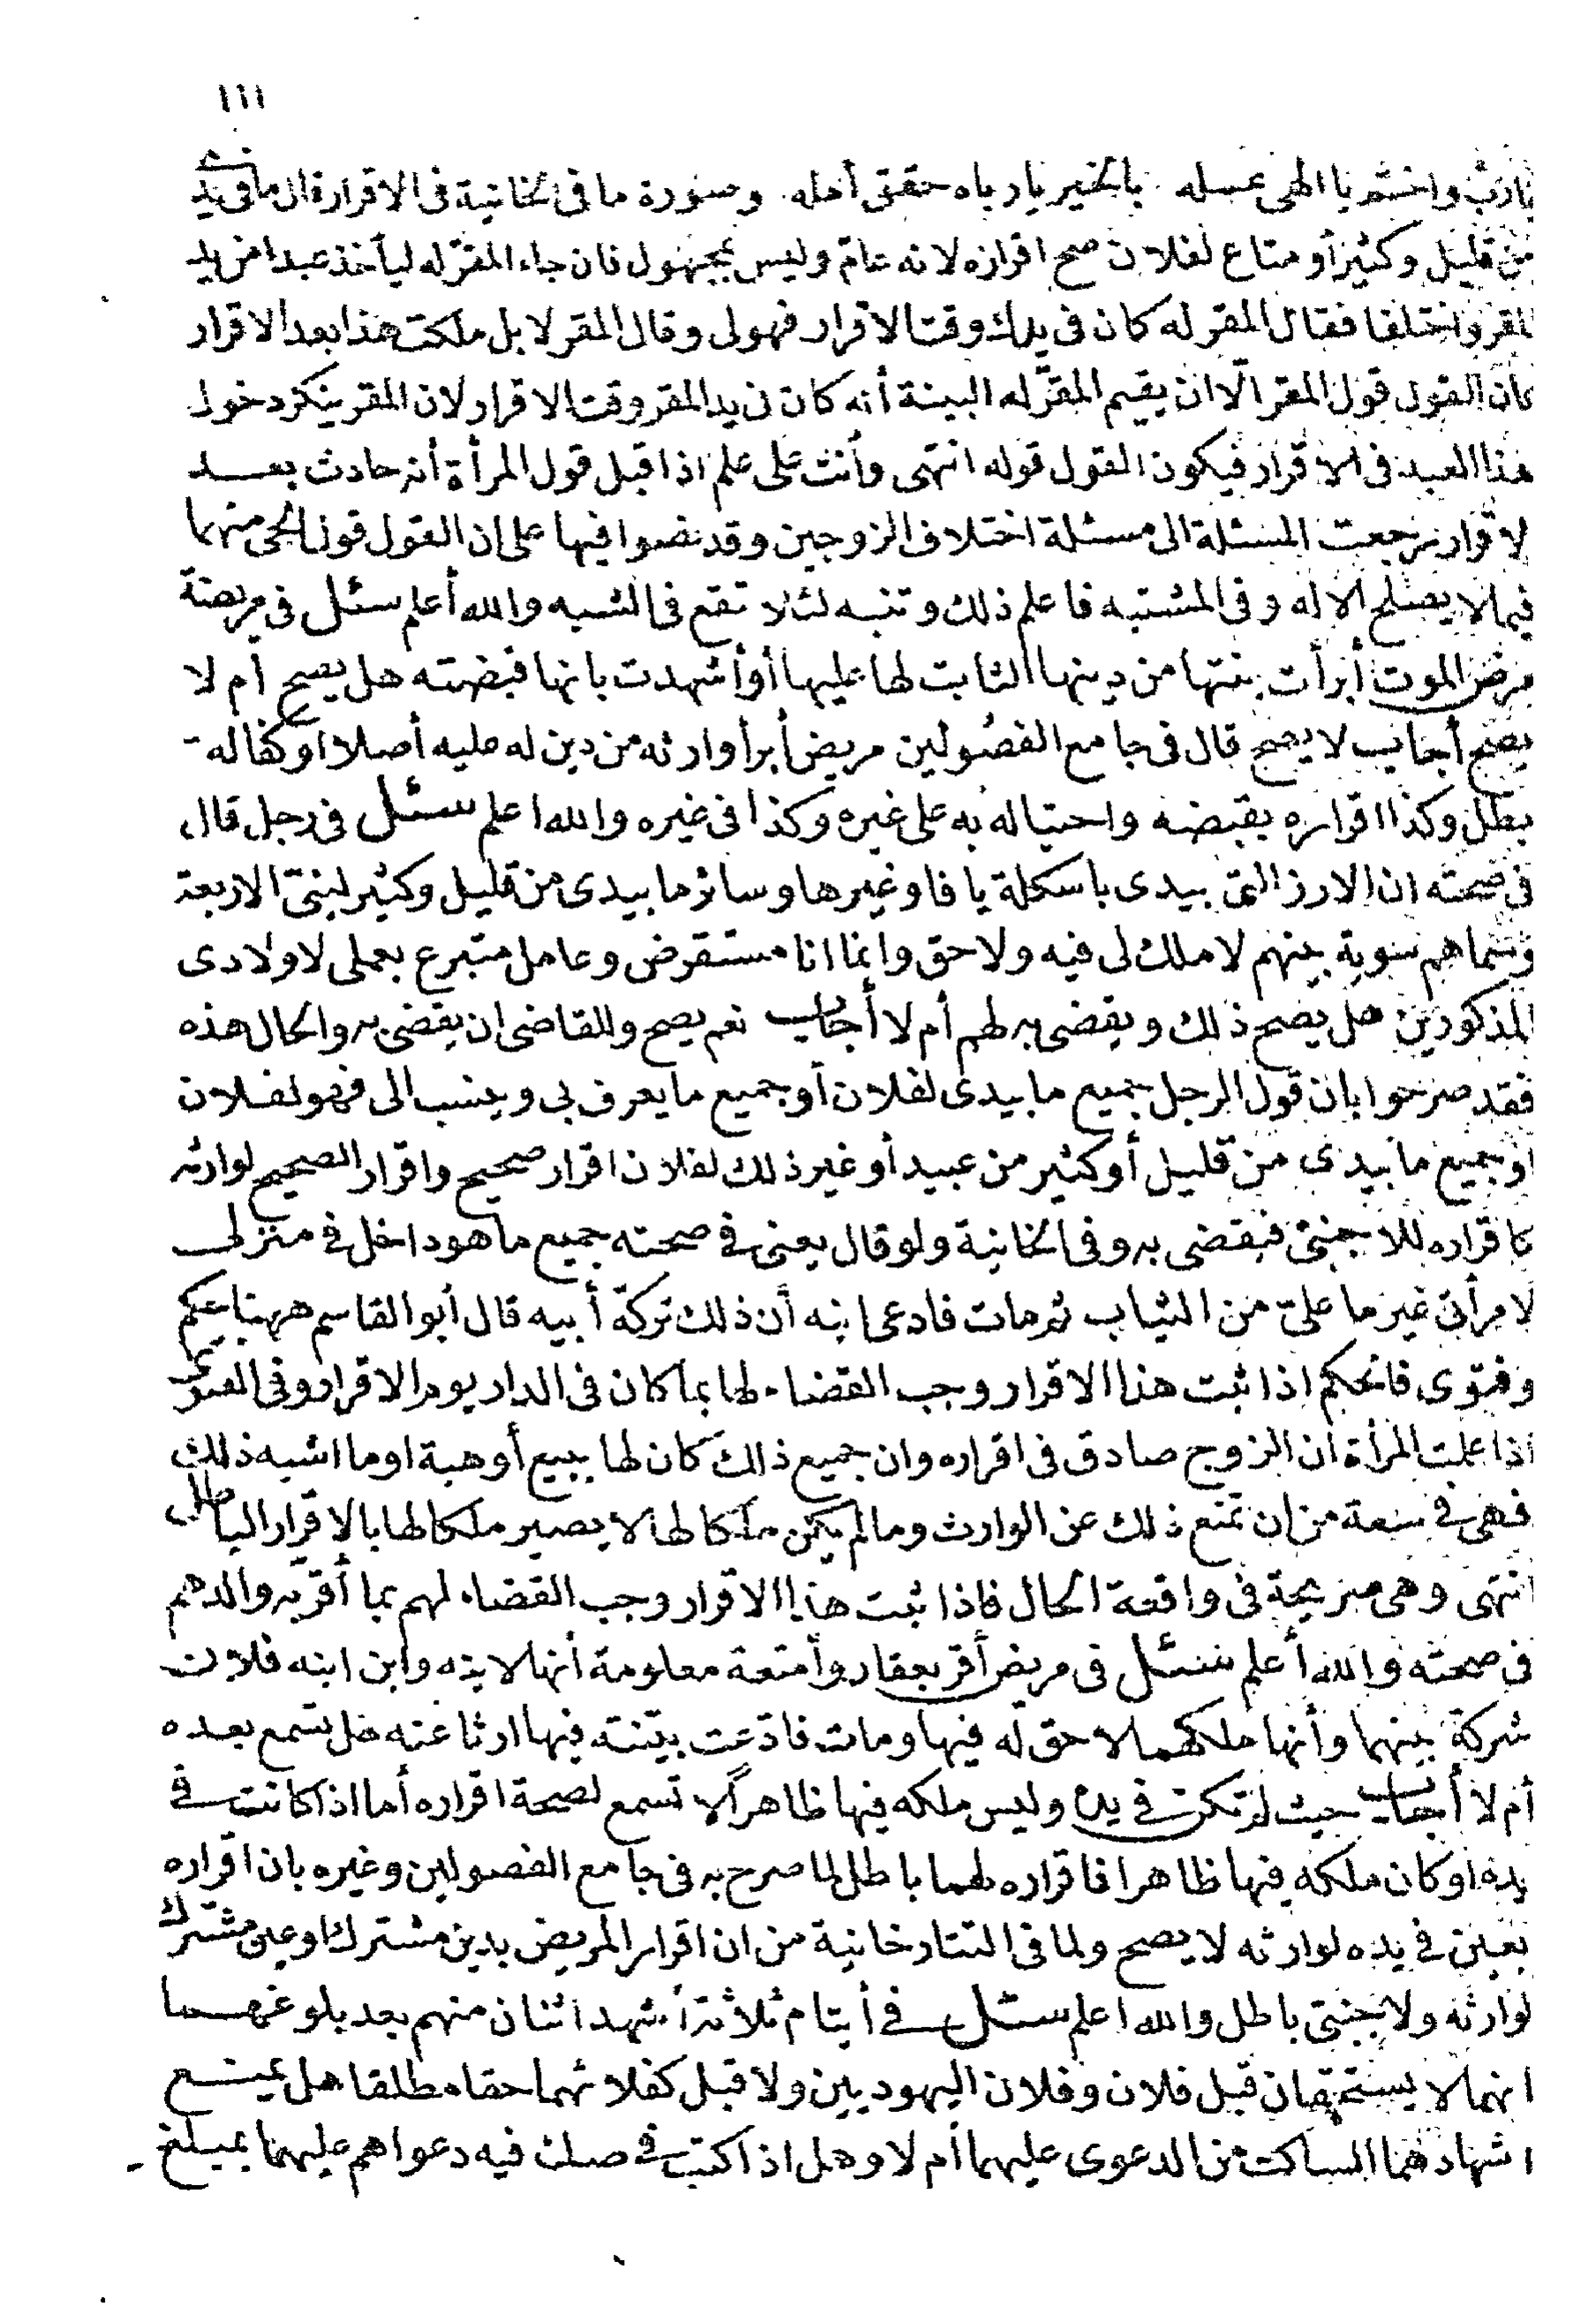 ١١١
يا رب واختم يا الهى عمله بالخير يا رباه حقق أمله وصورة ما فى الخانية فى الاقرار قال ما فى يدى
من قليل وكثير أو متاع لفلان صح اقراره لانه عام وليس بمجهول فان جاء المقر له ليأخذ عبدا من يد
المقر واختلفا فقال المقر له كان فى يدك وقت الاقرار فهو لى وقال المقر لا بل ملكت هذا بعد الاقرار
كان القول قول المقر الّا ان يقيم المقرّ له البينة أنه كان فى يد المقر وقت الاقرار لان المقر ينكر دخول
هذا العبد فى الاقرار فيكون القول قوله انتهى وأنت على علم اذا قبل قول المرأة أنه حادث بعد
لاقرار رجعت المسئلة الى مسئلة اختلاف الزوجين وقد نصوا فيها على ان القول قول الحى منهما
فيما لا يصلح الا له وفى المشتبه فاعلم ذلك وتنبه لئلا تقع فى الشبه والله أعلم سئل فى مريضة
مرض الموت أبرأت بنتها من دينها الثابت لها عليها أو أشهدت بانها قبضته هل يصح أم لا
يصح أجاب لا يصح قال فى جامع الفصولين مريض أبرأ وارثه من دين له عليه أصلا أو كفالة
بطل وكذا اقراره بقبضه واحتياله به على غيره وكذا فى غيره والله اعلم سئل فى رجل قال
فى صحته ان الارز التى بيدى باسكلة يافا وغيرها وسائر ما بيدى من قليل وكثير لبنىّ الاربعة
وسماهم سوية بينهم لا ملك لى فيه ولا حق وانما انا مستقرض وعامل متبرع بعملى لاولادى
المذكورين هل يصح ذلك ويقضى به لهم أم لا أجاب نعم يصح وللقاضى ان يقضى به والحال هذه
فقد صرحوا بان قول الرجل جميع ما بيدى لفلان أو جميع ما يعرف بى وينسب الى فهو لفلان
أو جميع ما بيدى من قليل أو كثير من عبيد أو غير ذلك لفلان اقرار صحيح واقرار الصحيح لوارثه
كاقراره للاجنبى فيقضى به وفى الخانية ولو قال يعنى فى صحته جميع ما هو داخل فى منزلى
لامرأتى غير ما علىّ من الثياب ثم مات فادعى ابنه أن ذلك تركة أبيه قال أبو القاسم ههنا حكم
وفتوى فالحكم اذا ثبت هذا الاقرار وجب القضاء لها بما كان فى الدار يوم الاقرار وفى الفتوى
اذا علمت المرأة ان الزوج صادق فى اقراره وان جميع ذلك كان لها ببيع أو هبة او ما اشبه ذلك
فهى فى سعة من ان تمنع ذلك عن الوارث وما لم يكن ملكا لها لا يصير ملكا لها بالاقرار الباطل
انتهى وهى صريحة فى واقعة الحال فاذا ثبت هذا الاقرار وجب القضاء لهم بما أقر به والدهم
فى صحته والله أعلم سئل فى مريض أقر بعقار وأمتعة معلومة أنها لابنه وابن ابنه فلان
شركة بينهما وأنها ملكهما لا حق له فيها ومات فادّعت بنته فيها ارثا عنه هل تسمع بعده
أم لا أجاب حيث لم تكن فى يده وليس ملكه فيها ظاهرا لا تسمع لصحة اقراره أما اذا كانت فى
يده او كان ملكه فيها ظاهرا فاقراره لهما باطل لما صرح به فى جامع الفصولين وغيره بان اقراره
بعين فى يده لوارثه لا يصح ولما فى التتارخانية من ان اقرار المريض بدين مشترك او عين مشترك
لوارثه ولاجنبى باطل والله اعلم سئل فى أيتام ثلاثة أشهد اثنان منهم بعد بلوغهما
انهما لا يستحقان قبل فلان وفلان اليهوديين ولا قبل كفلائهما حقا مطلقا هل يمنع
اشهادهما الساكت من الدعوى عليهما أم لا وهل اذا كتب فى صك فيه دعواهم عليهما بمبلغ